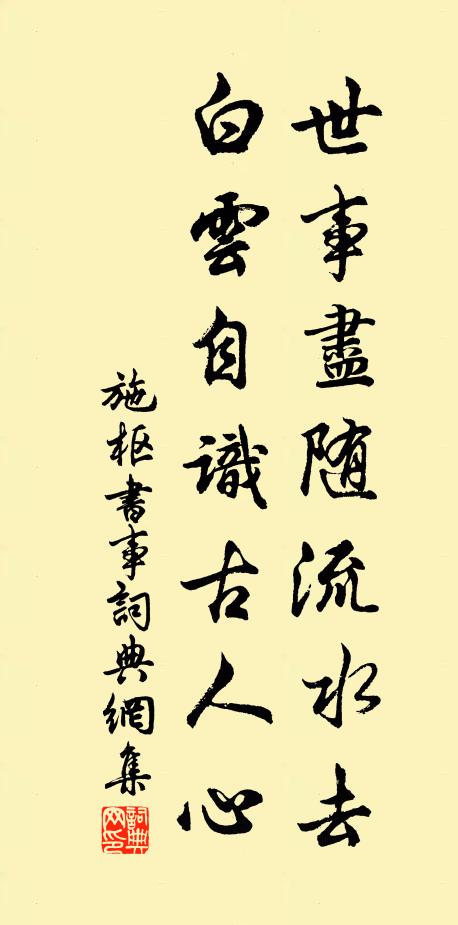 世事盡随流水去
白雲自識古人心
施枢書事詞典網集
詞典網印